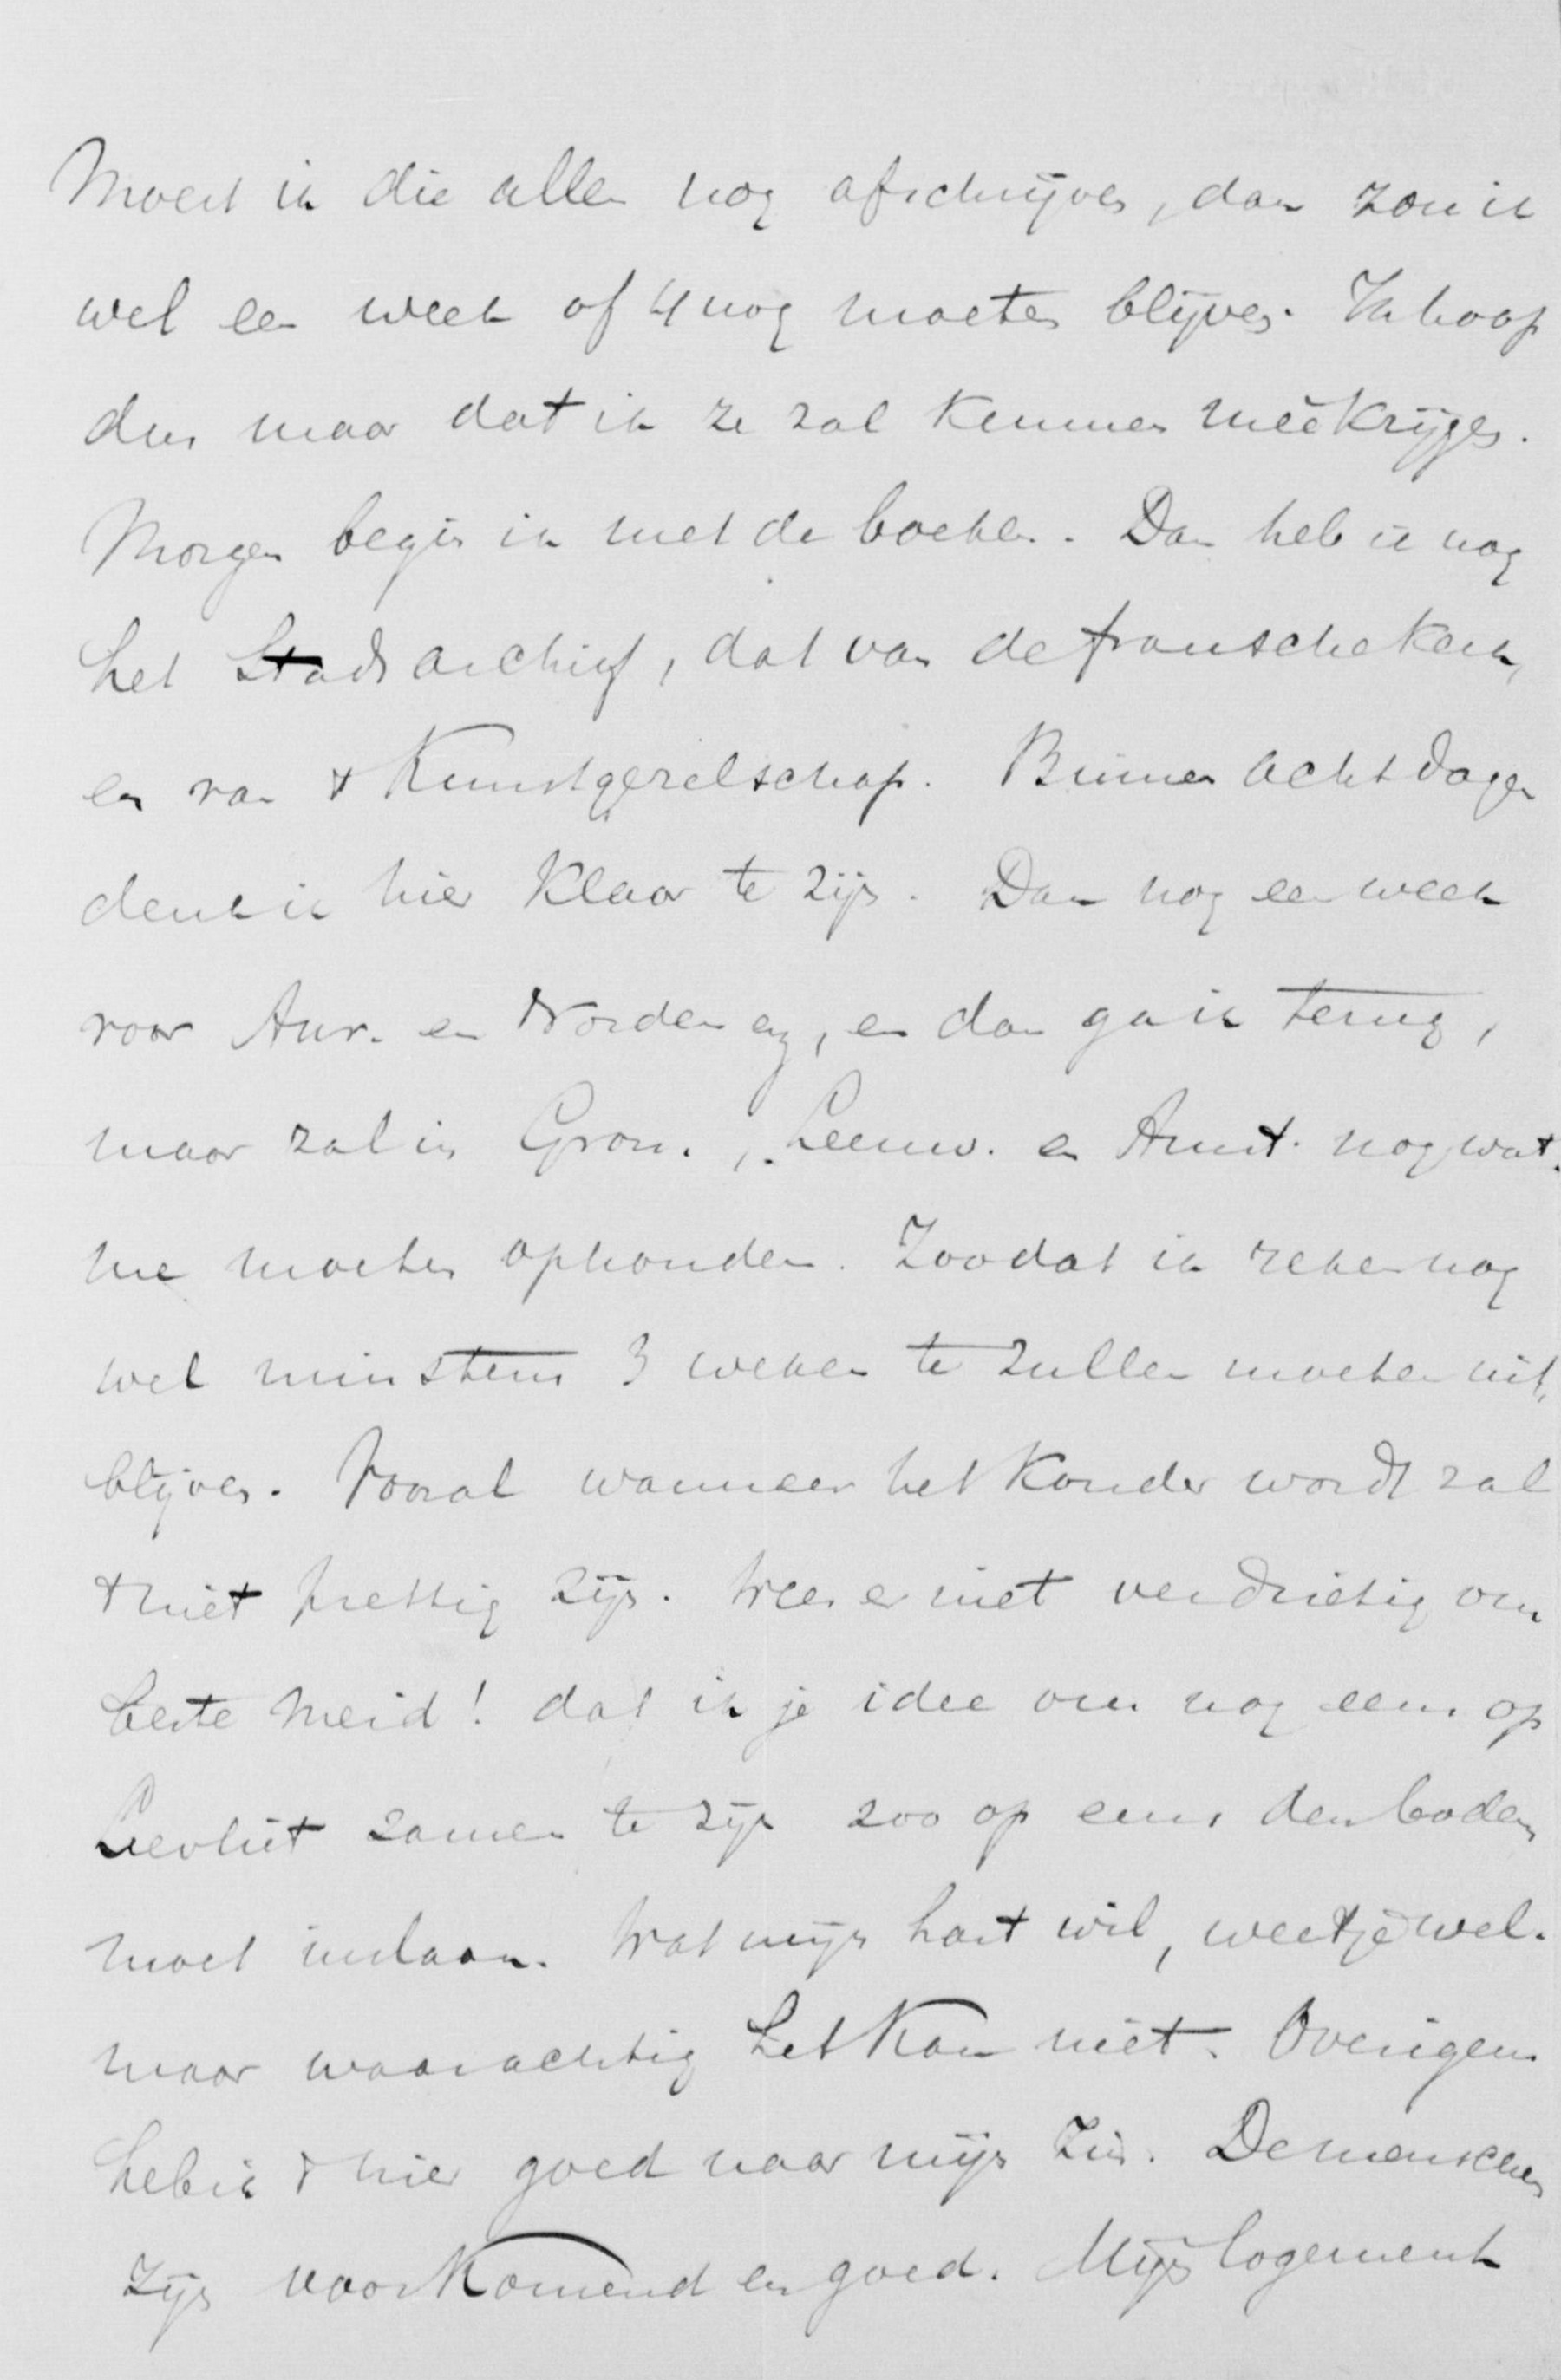 Moest ik die allen nog afschrijven, dan zou ik
wel een week of 4 nog moeten blijven. Ik hoop
dus maar dat ik ze zal kunnen meêkrijgen.
Morgen begin ik met de boeken. Dan heb ik nog
het Stadsarchief, dat van de fransche kerk,
en van 't Kunstgezelschap. Binnen acht dagen
denk ik hier klaar te zijn. Dan nog een week
voor Aur. en Norden enz, en dan ga ik terug,
maar zal in Gron., Leeuw. en Amst. nog wat
me moeten ophouden. Zoodat ik reken nog
wel minstens 3 weken te zullen moeten uit,
blijven. Vooral wanneer het kouder wordt zal
't niet prettig zijn. Wees er niet verdrietig om
beste meid! dat ik je idee om nog eens op
Lievliet samen te zijn zoo op eens den bodem
moet inslaan. Wat mijn hart wil, weet je wel.
maar waarachtig het kan niet. Overigens
heb ik 't hier goed naar mijn zin. De menschen
zijn voorkomend en goed. Mijn logement